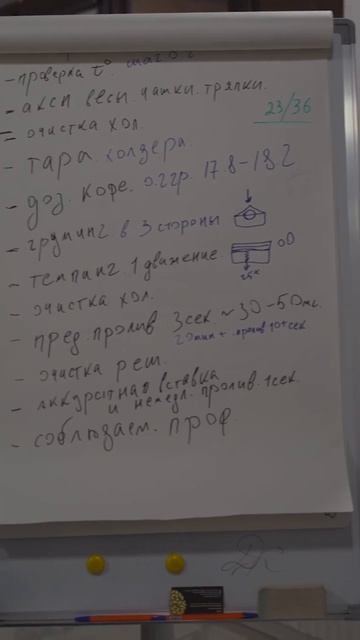 - проверка t°
- аксс весы. чашки. тряпки.
23/36
= очистка хол.
- тара холдера.
- доз. кофе. 0.2гр. 17.8-18.2
- груминг в 3 стороны
- темпинг. 1 движение.
- очистка хол.
- пред. пролив 3 сек. ~ 30-50мл.
- очистка реш.
- Аккуратная вставка
и немедл. пролив. 1 сек.
- соблюдаем. проф